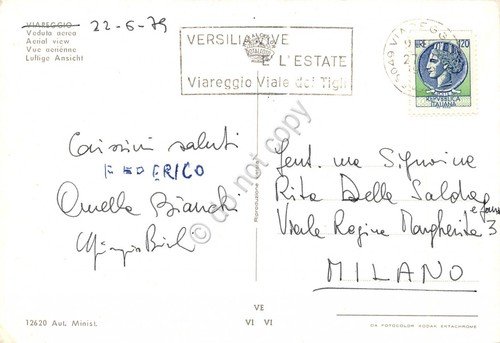 VIAREGGIO 22-6-79
Veduta aerea
Aerial view
Vue aérienne
Luftige Ansicht
VERSILIA VIVE
E L'ESTATE
Viareggio Viale dei Tigli
VIAREGG
LIRE 120
REPVBBLICA
ITALIANA
Carissimi saluti
FEDERICO
Ornella Bianchi
Gent. ma Signorina
Rita Della Salda
e fam
Viale Regina Margherita 3
MILANO
do not copy
VE
VI VI
12620 Aut. Minist.
DA FOTOCOLOR KODAK EKTACHROME